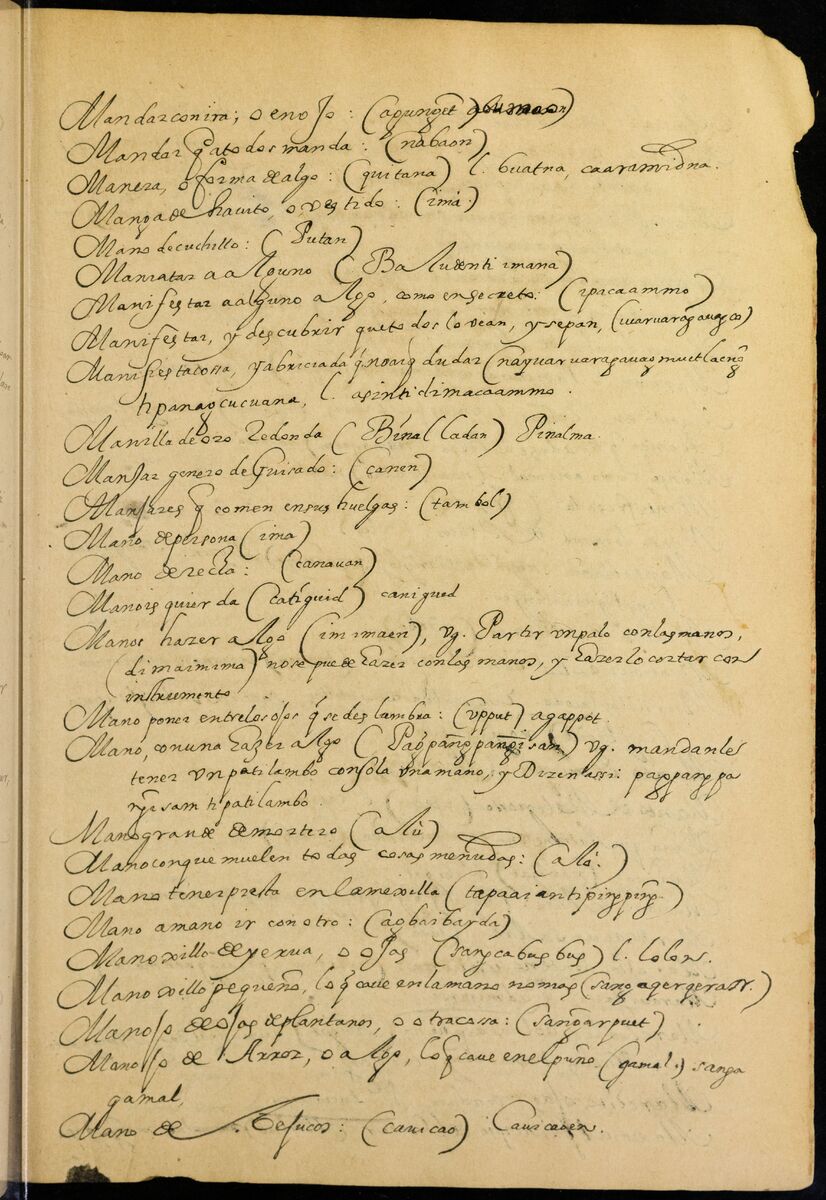 Mandar con ira; o enojo: (apunget)
Mandar q̃ a todos manda: (nabaon)
Manera, o forma de algo: (quitana) l. buatna, caaramidna.
Manga de havito, o vestido: (ima)
Mano de cuchillo: (Putan)
Maniatar a alguno (Baludenti imana)
Manifestar a alguno algo, como en secreto: (ipacaammo)
Manifestar, y descubrir que todos lo vean, y sepan,
Manifiesta cossa, y abriciada
l. asintidimacaammo.
Manilla de oro Redonda (Binal ladan) Pinalma.
Manjar genero de Guisado: (canen)
Manjares q̃ comen en sus huelgas: (tambol)
Mano de persona (ima)
Mano derecha: (canavan)
Mano isquierda (catiguid) canigued
Manos hazer algo (imimaen), vg. Partir vn palo con las manos,
(dimaimima) no se puede hazer con las manos, y hazerlo cortar con
instrumento
Mano poner entre los ojos q̃ se deslambra: (vpput) agappot.
Mano, con una hazer algo vg. mandanle
tener vn patilambo con sola vna mano, y Dizen assi:
ti patilambo.
Mano grande de mortero (alú)
Mano con que muelen todas cosas menudas: (aló.)
Mano tener puesta en la mexilla
Mano a mano ir con otro: (agbaibarda)
Manoxillo de yerva, o ojas (sangcabusbus) l. lolon.
Manoxillo pequeño, lo q̃ cave en la mano no mas
Manojo de ojas de plantanos, o otra cossa: (sangarpuet)
Manojo de Arroz, o algo, lo q̃ cave en el puño. (gamal.) sanga
gamal,
Mano de Bejucos: (cavicao) Cavicaoen.